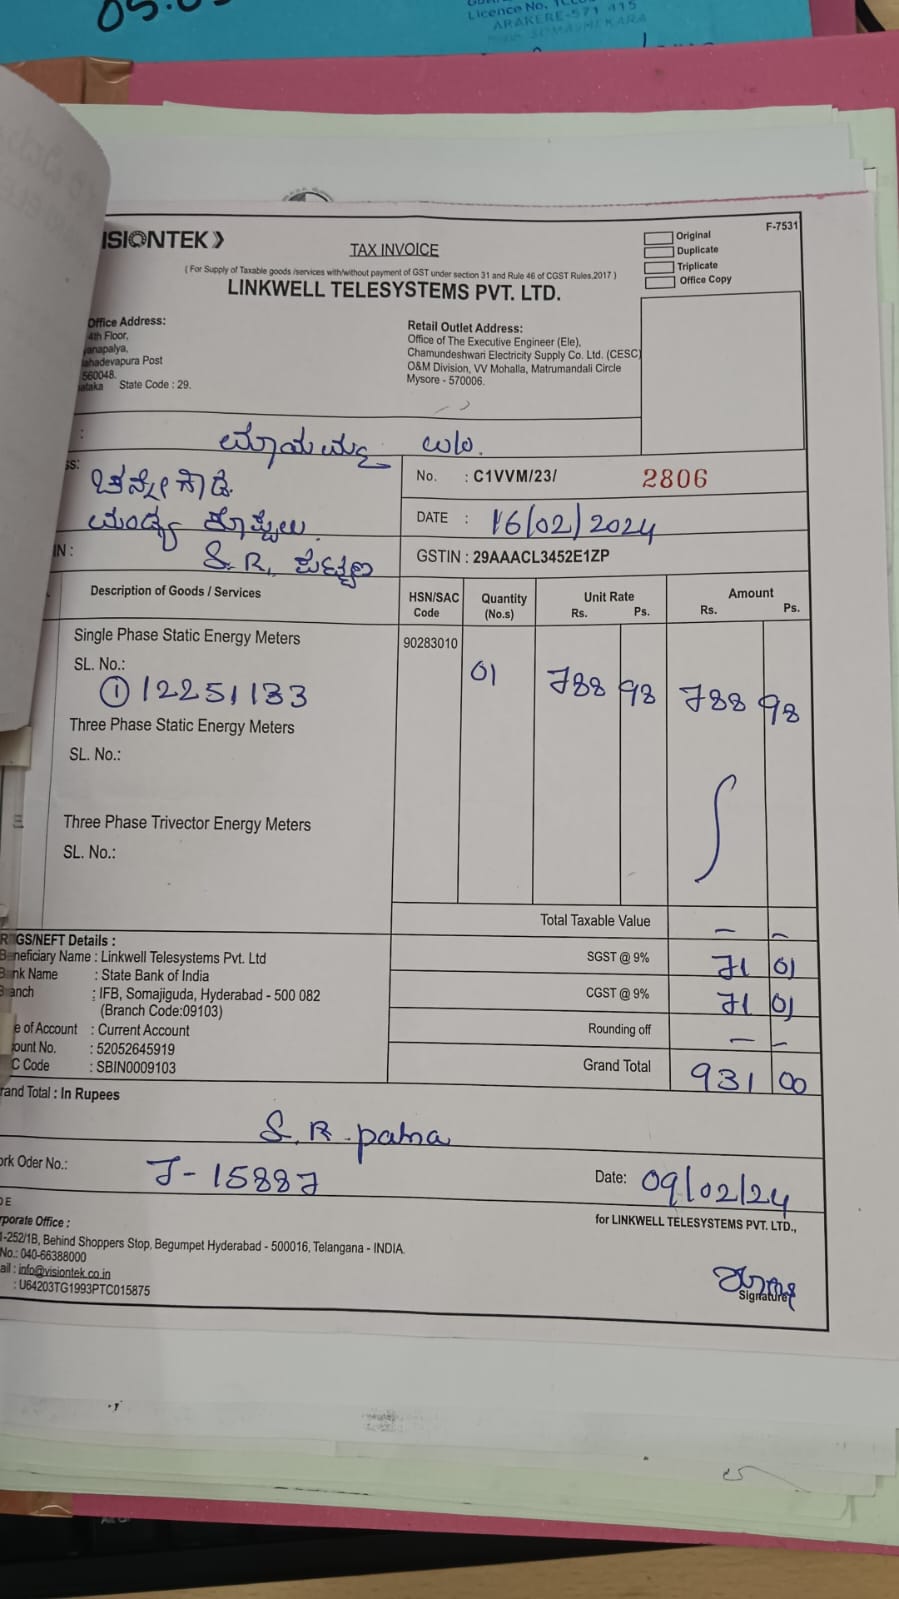 05.0
Licence No.
ARAKERE-571 415
ISIONTEK
TAX INVOICE
( For Supply of Taxable goods /services with/without payment of GST under section 31 and Rule 46 of CGST Rules,2017 )
LINKWELL TELESYSTEMS PVT. LTD.
Original
Duplicate
Triplicate
Office Copy
F-7531
Office Address:
4th Floor,
anapalya,
ahadevapura Post
560048.
ataka State Code : 29.
Retail Outlet Address:
Office of The Executive Engineer (Ele),
Chamundeshwari Electricity Supply Co. Ltd. (CESC)
O&M Division, VV Mohalla, Matrumandali Circle
Mysore - 570006.
:
ss:
ಮಂಡ್ಯ ಕೊಪ್ಪಲು.
IN :
S. R.
No. : C1VVM/23/ 2806
DATE : 16/02/2024
GSTIN : 29AAACL3452E1ZP
Description of Goods / Services
HSN/SAC Code
Quantity (No.s)
Unit Rate
Rs. Ps.
Amount
Rs. Ps.
Single Phase Static Energy Meters 90283010
SL. No.: 01 788 98 788 98
① 12251133
Three Phase Static Energy Meters
SL. No.:
Three Phase Trivector Energy Meters
SL. No.:
Total Taxable Value — —
SGST @ 9% 71 01
CGST @ 9% 71 01
Rounding off — —
Grand Total 931 00
RTGS/NEFT Details :
Beneficiary Name : Linkwell Telesystems Pvt. Ltd
Bank Name : State Bank of India
Branch : IFB, Somajiguda, Hyderabad - 500 082
(Branch Code:09103)
e of Account : Current Account
ount No. : 52052645919
C Code : SBIN0009103
rand Total : In Rupees
S. R. patna
ork Oder No.: J-15887
Date: 09/02/24
DE
for LINKWELL TELESYSTEMS PVT. LTD.,
rporate Office :
1-252/1B, Behind Shoppers Stop, Begumpet Hyderabad - 500016, Telangana - INDIA.
No.: 040-66388000
ail : info@visiontek.co.in
: U64203TG1993PTC015875
Signature